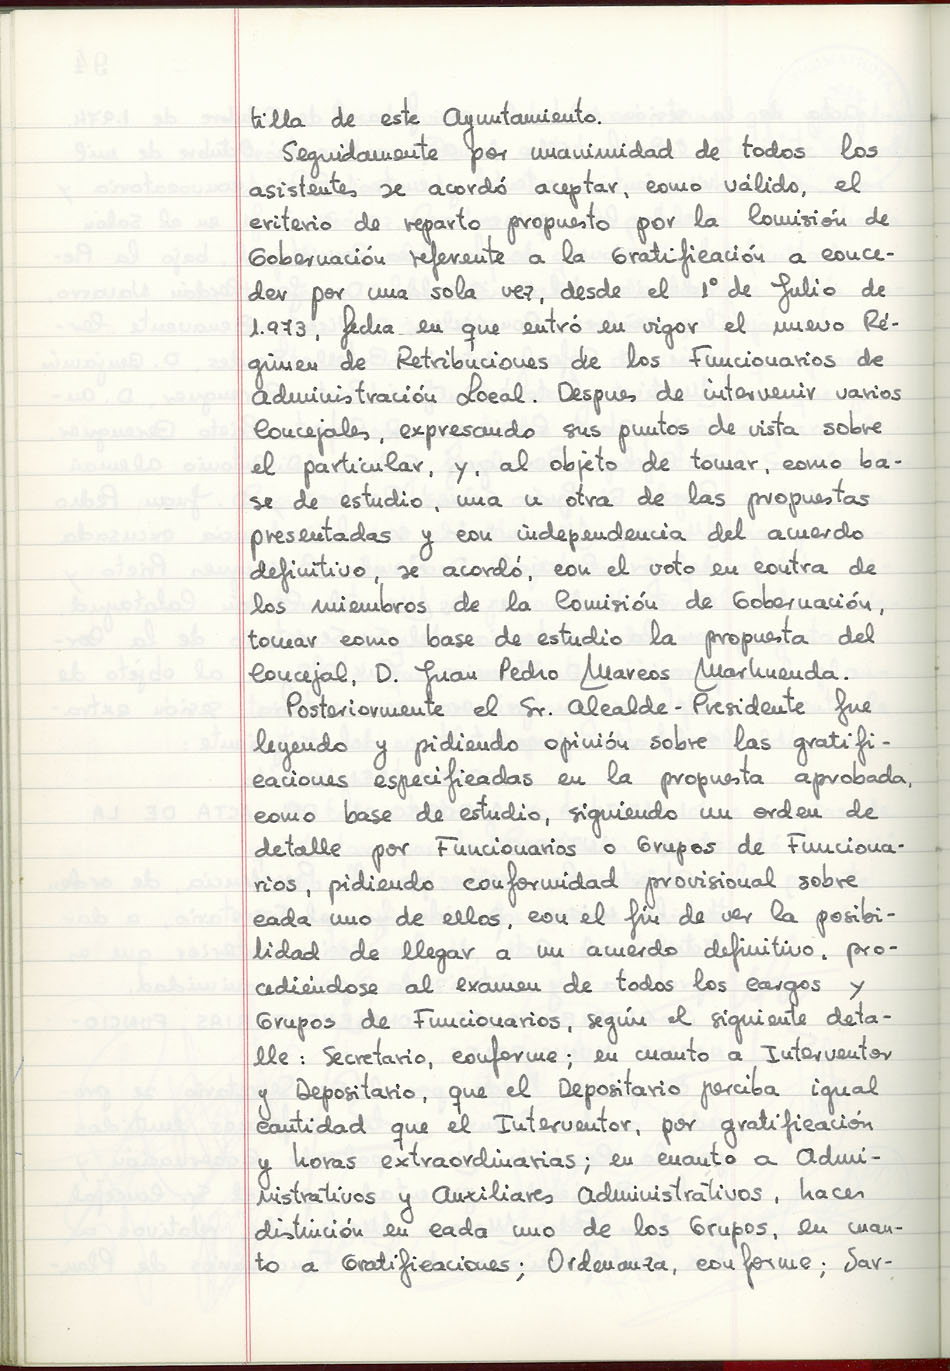 tilla de este Ayuntamiento.
Seguidamente por unanimidad de todos los
asistentes se acordó aceptar, como válido, el
criterio de reparto propuesto por la Comisión de
Gobernación referente a la Gratificación a conce-
der por una sola vez, desde el 1º de Julio de
1.973, fecha en que entró en vigor el nuevo Ré-
gimen de Retribuciones de los Funcionarios de
Administración Local. Despues de intervenir varios
Concejales, expresando sus puntos de vista sobre
el particular, y, al objeto de tomar, como ba-
se de estudio, una u otra de las propuestas
presentadas y con independencia del acuerdo
definitivo, se acordó, con el voto en contra de
los miembros de la Comisión de Gobernación,
tomar como base de estudio la propuesta del
Concejal, D. Juan Pedro Marcos Marhuenda.
Posteriormente el Sr. Alcalde-Presidente fue
leyendo y pidiendo opinión sobre las gratifi-
caciones especificadas en la propuesta aprobada,
como base de estudio, siguiendo un orden de
detalle por Funcionarios o Grupos de Funciona-
rios, pidiendo conformidad provisional sobre
cada uno de ellos, con el fin de ver la posibi-
lidad de llegar a un acuerdo definitivo, pro-
cediéndose al examen de todos los cargos y
Grupos de Funcionarios, según el siguiente deta-
lle: Secretario, conforme; en cuanto a Interventor
y Depositario, que el Depositario perciba igual
cantidad que el Interventor, por gratificación
y horas extraordinarias; en cuanto a Admi-
nistrativos y Auxiliares Administrativos, hacer
distinción en cada uno de los Grupos, en cuan-
to a Gratificaciones; Ordenanza, conforme; Sar-